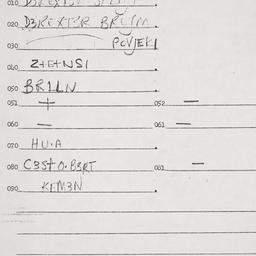 010
020 D3REXT3R BRYM
030 POVJEKI
040 Z+E+NSI
050 BR1LN
051 + 052 —
060 — 061 —
070 HU·A
080 C3St O·B3RT 081 —
090 KFM3N